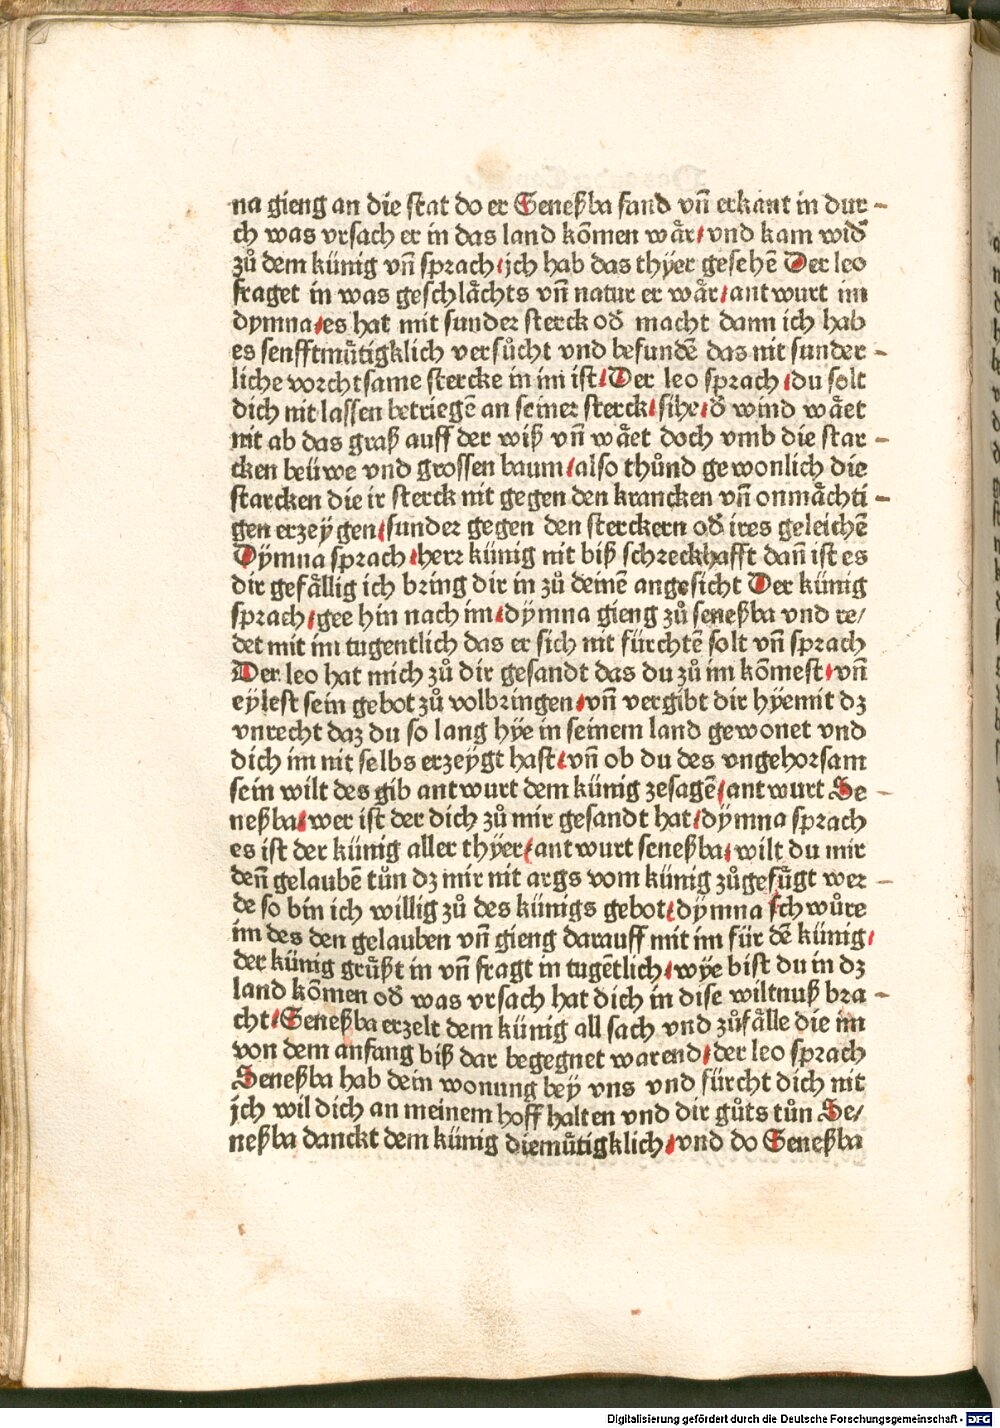 na gieng an die stat do er Seneßba fand vñ erkant in dur-
ch was vrsach er in das land kõmen wår/vnd kam wid᷑
zů dem künig vñ sprach/jch hab das thÿer gesehẽ Der leo
fraget in was geschlåchts vñ natur er wår/antwurt im
dymna/es hat mit sunder sterck od᷑ macht dann ich hab
es senfftmůtigklich versůcht vnd befundẽ das nit sunder-
liche vorchtsame stercke in im ist/Der leo sprach/du solt
dich nit lassen betriegẽ an seiner sterck/sihe/d᷑ wind wået
nit ab das graß auff der wiß vñ wået doch vmb die star-
cken beüwe vnd grossen baum/also thůnd gewonlich die
starcken die ir sterck nit gegen den krancken vñ onmåchti-
gen erzeygen/sunder gegen den sterckern od᷑ ires geleichẽ
Dÿmna sprach/herr künig nit biß schreckhafft dañ ist es
dir gefållig ich bring dir in zů deinẽ angesicht Der künig
sprach/gee hin nach im/dÿmna gieng zů seneßba vnd re/
det mit im tugentlich das er sich nit fürchtẽ solt vñ sprach
Der leo hat mich zů dir gesandt das du zů im kõmest/vñ
eylest sein gebot zů volbringen/vñ vergibt dir hÿemit dz
vnrecht daz du so lang hÿe in seinem land gewonet vnd
dich im nit selbs erzeÿgt hast/vñ ob du des vngehorsam
sein wilt des gib antwurt dem künig zesagẽ/antwurt Se-
neßba/wer ist der dich zů mir gesandt hat/dÿmna sprach
es ist der künig aller thÿer/antwurt seneßba/wilt du mir
deñ gelaubẽ tůn dz mir nit args vom künig zůgefůgt wer-
de so bin ich willig zů des künigs gebot/dÿmna schwůre
im des den gelauben vñ gieng darauff mit im für dẽ künig/
der künig grůßt in vñ fragt in tugẽtlich/wÿe bist du in dz
land kõmen od᷑ was vrsach hat dich in dise wiltnuß bra-
cht/Seneßba erzelt dem künig all sach vnd zůfålle die im
von dem anfang biß dar begegnet warend/der leo sprach
Seneßba hab dein wonung bey vns vnd fürcht dich nit
jch wil dich an meinem hoff halten vnd dir gůts tůn Se/
neßba danckt dem künig diemůtigklich/vnd do Seneßba
Digitalisierung gefördert durch die Deutsche Forschungsgemeinschaft - DFG